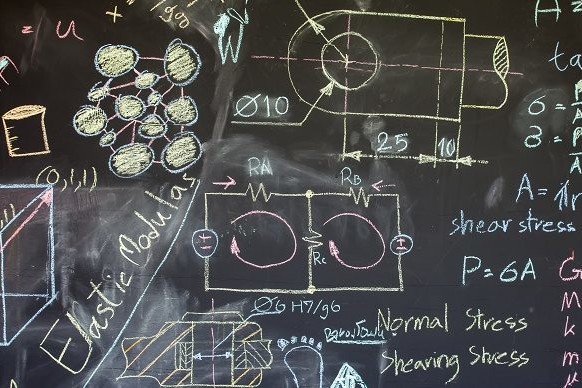 = u
+
Ø10
25
10
A =
ta
6 =
8 =
A = πr
shear stress
P = 6A
(0,1,1)
Elastic Modulas
RA
RB
Rc
Ø6 H7/g6
Normal Stress
Shearing Stress
G
M
k
m